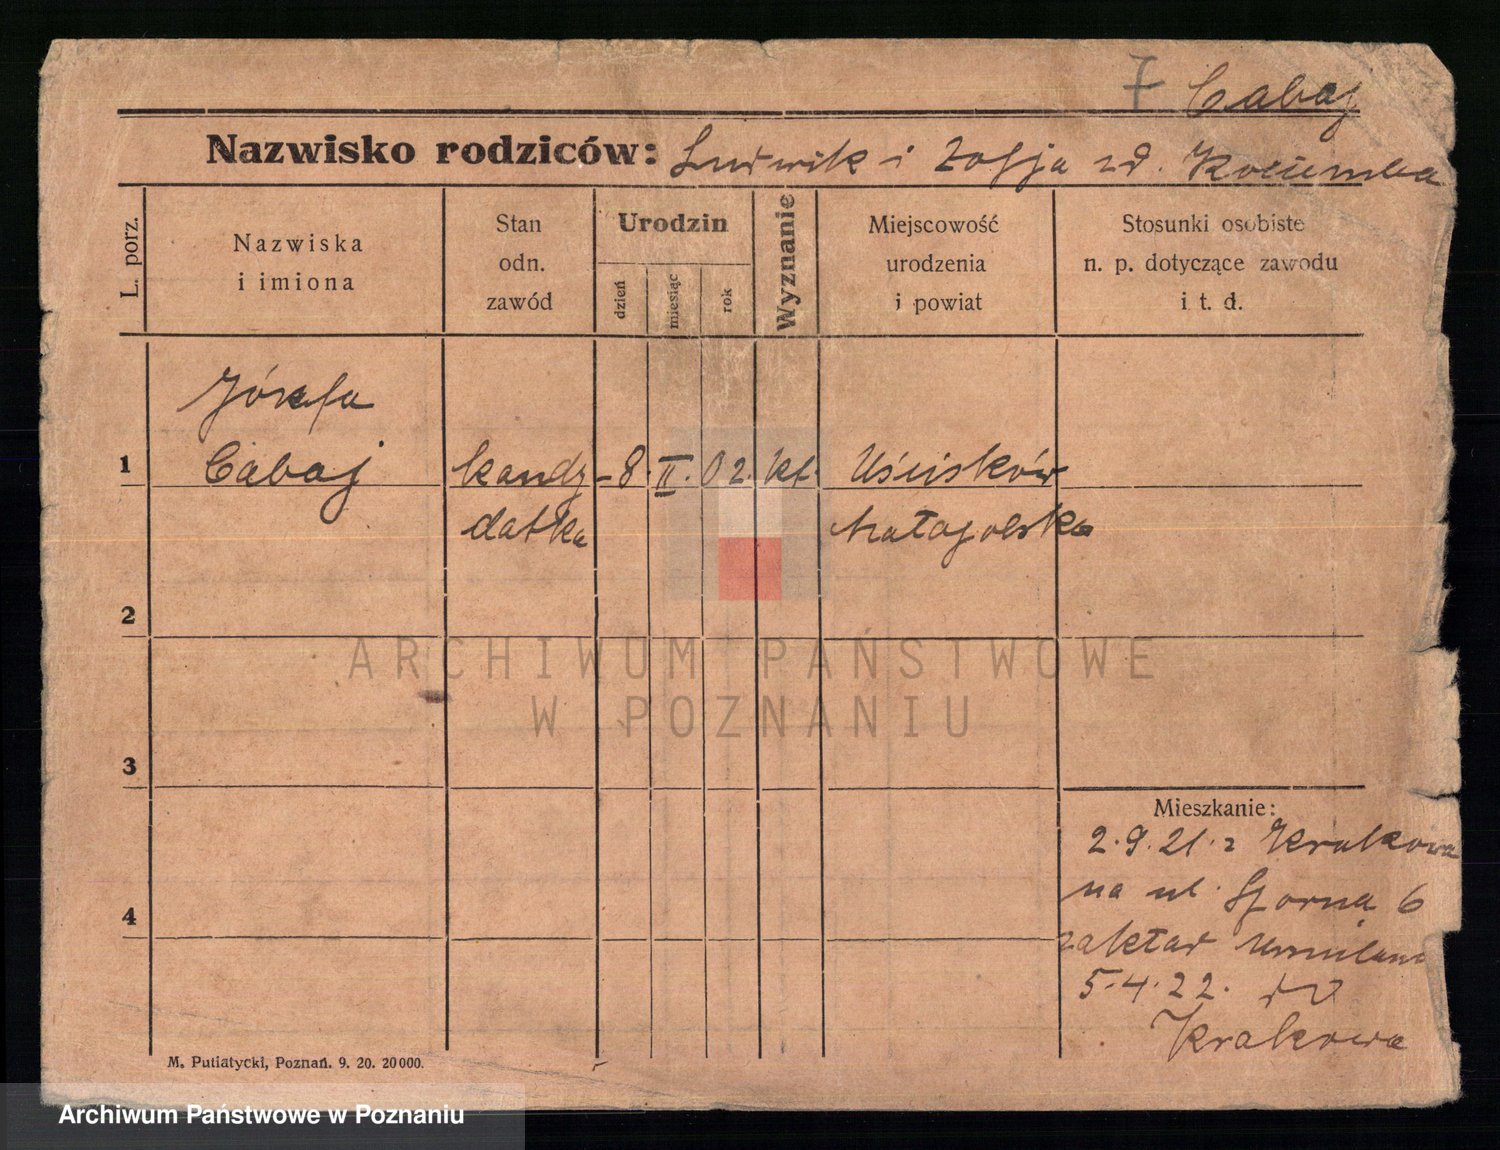 7 Cabaj
Nazwisko rodziców: Ludwik i Zofja zd. Kociemba
L. porz.
Nazwiska
i imiona
Stan
odn.
zawód
Urodzin
dzień
miesiąc
rok
Wyznanie
Miejscowość
urodzenia
i powiat
Stosunki osobiste
n. p. dotyczące zawodu
i t. d.
Józefa
1 Cabaj kandy- 8. II. 02. kt. Uścisków
datka Małopolska
2
ARCHIWUM PAŃSTWOWE
W POZNANIU
3
Mieszkanie:
2.9.21. z Krakowa
na ul. Sporna 6
4
zakład
5.4.22. do
Krakowa
M. Putiatycki, Poznań. 9. 20. 20000.
Archiwum Państwowe w Poznaniu